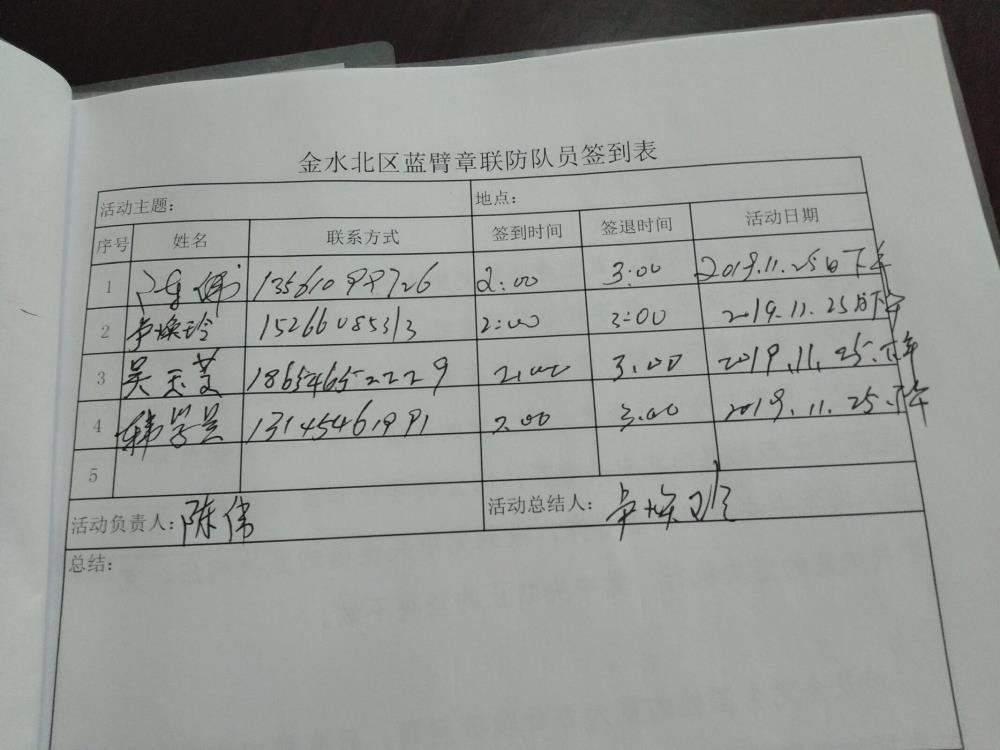 金水北区蓝臂章联防队员签到表
活动主题: 地点:
序号 姓名 联系方式 签到时间 签退时间 活动日期
1 陈伟 2:00 3:00 2019.11.25日下午
2 卢焕玲 15266085313 2:00 3:00 2019.11.25日下午
3 吴玉芝 18654652229 2:00 3.00 2019.11.25.下午
4 韩学兰 13145461991 2.00 3.00 2019.11.25.下午
5
活动负责人: 陈伟 活动总结人: 卢焕玲
总结: